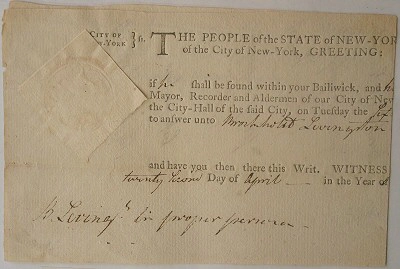 CITY OF
NEW-YORK } ss. THE PEOPLE of the STATE of NEW-YOR
of the City of New-York, GREETING:
if he shall be found within your Bailiwick, and
Mayor, Recorder and Aldermen of our City of New
the City-Hall of the said City, on Tuesday the
to answer unto Brockholst Livingston
and have you then there this Writ. WITNESS
twenty second Day of April in the Year
B. Livings in proper person